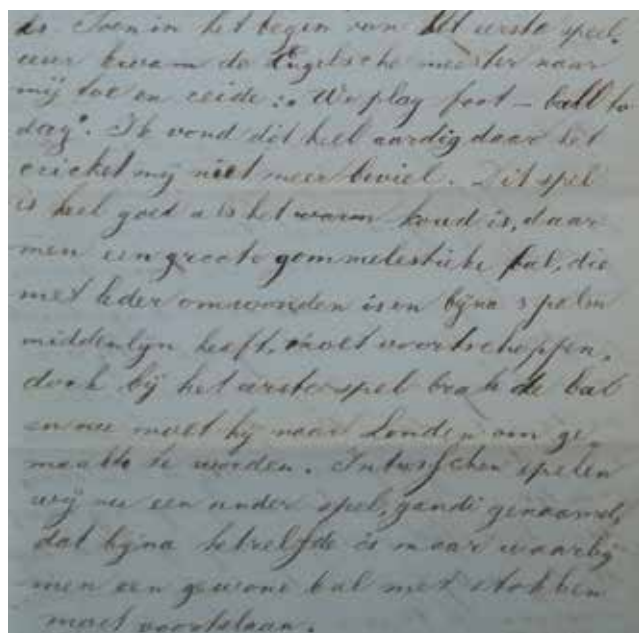 is. Toen in het begin van het eerste speel-
uur kwam de Engelsche meester naar
mij toe en zeide: "We play foot-ball to
day". Ik vond dit heel aardig daar het
cricket mij niet meer beviel. Dit spel
is heel goed als het warm koud is, daar
men een groote gommelestieke bal, die
met leder omwonden is en bijna 3 palm
middenlyn heeft, moet voortschoppen,
doch bij het eerste spel brak de bal
en nu moet hij naar Londen om ge-
maakt te worden. Intusschen spelen
wij nu een ander spel, gandi genaamd,
dat bijna hetzelfde is maar waarbij
men een gewone bal met stokken
moet voortslaan.